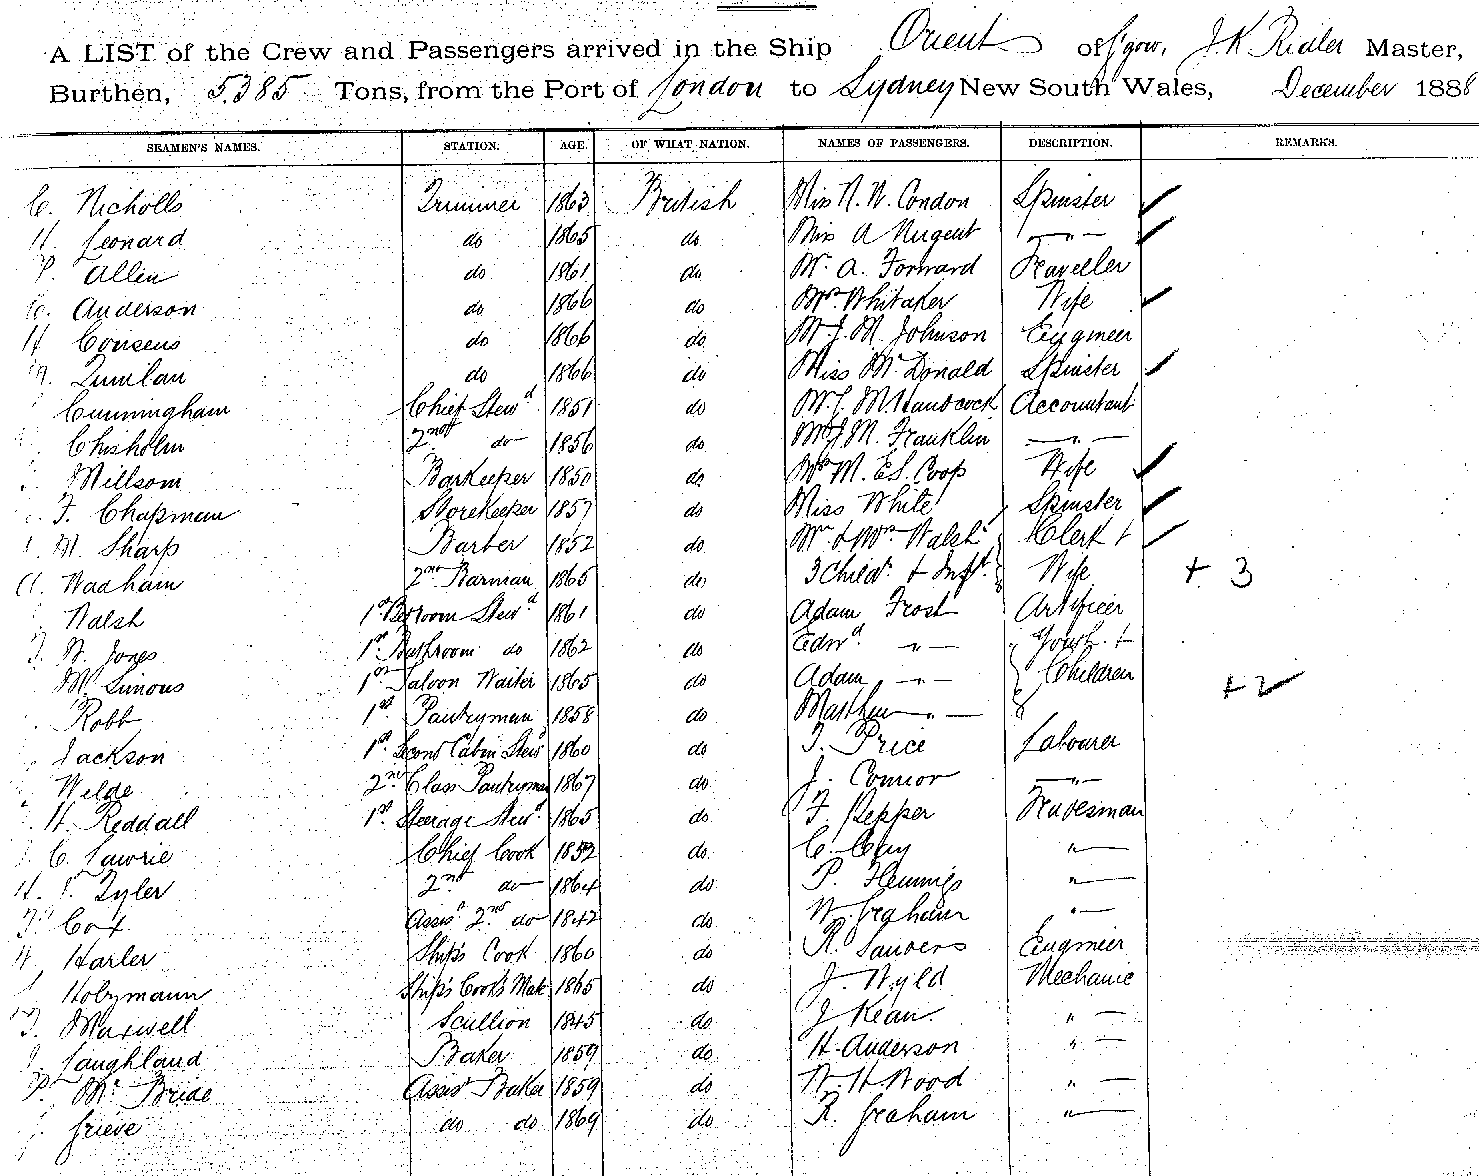 A LIST of the Crew and Passengers arrived in the Ship Orient of Ggow, J. K. Ridler Master,
Burthen, 5385 Tons, from the Port of London to Sydney New South Wales, December 1888
SEAMEN'S NAMES. STATION. AGE. OF WHAT NATION. NAMES OF PASSENGERS. DESCRIPTION. REMARKS.
C. Nicholls Trimmer 1863 British Miss N. W. Condon Spinster
H. Leonard do 1865 do Miss A Nugent „
P. Allen do 1861 do Mr. A. Forward Traveller
Anderson do 1866 do Mrs Whitaker Wife
H Cousens do 1866 do Mr J. M. Johnson Engineer
Quinlan do 1866 do Miss Mc Donald Spinster
Cunningham Chief Stewd 1851 do Accountant
Chisholm 2nd do 1856 do Franklin „
Millsom Barkeeper 1850 do Mrs M. E. S. Coop Wife
F. Chapman Storekeeper 1857 do Miss White Spinster
M. Sharp Barber 1852 do Mr & Mrs Walsh Clerk +
A. Wadham 2nd Barman 1865 do 3 Childn & Inft. Wife + 3
Walsh 1st Bedroom Stewd 1861 do Adam Frost Artificer
W. Jones 1st Bathroom do 1862 do Edwd „ Youth +
M. Simons 1st Saloon Waiter 1865 do Adam „ Children +2
Robb 1st Pantryman 1858 do Matthew „
Jackson 1st Second Cabin Stewd 1860 do T. Price Labourer
Wilde 2nd Class Pantryman 1867 do J. Connor „
H. Reddall 1st Steerage Stewd 1865 do F. Pepper Tradesman
C. Lawrie Chief Cook 1852 do C. „
H. Tyler 2nd do 1864 do P. Flemmigs „
Cox Assist 2nd do 1842 do W. Graham „
Harler Ship's Cook 1860 do R. Sanders Engineer
Holzmann Ship's Cook's Mate 1865 do J. Wyld Mechanic
Maxwell Scullion 1845 do J Kean. „
Laughland Baker 1859 do H. Anderson „
P. Mc Bride Assist Baker 1859 do W. H Wood „
Grieve do do 1869 do R. Graham „